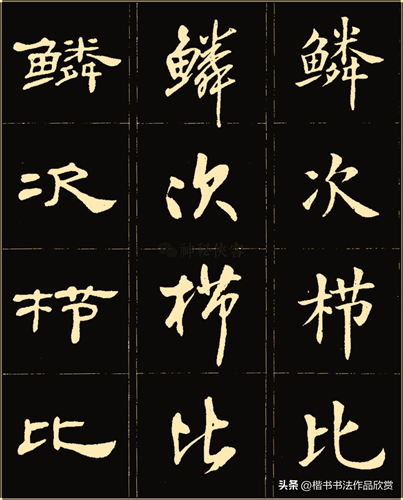 鳞次栉比
鳞次栉比
鳞次栉比
神秘侠客
头条 @楷书书法作品欣赏